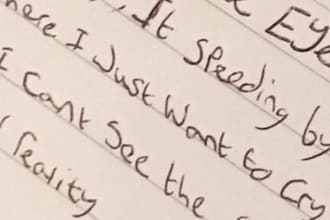 Eye
, It Speeding by
here I Just Want to Cry
I Cant See the
reality